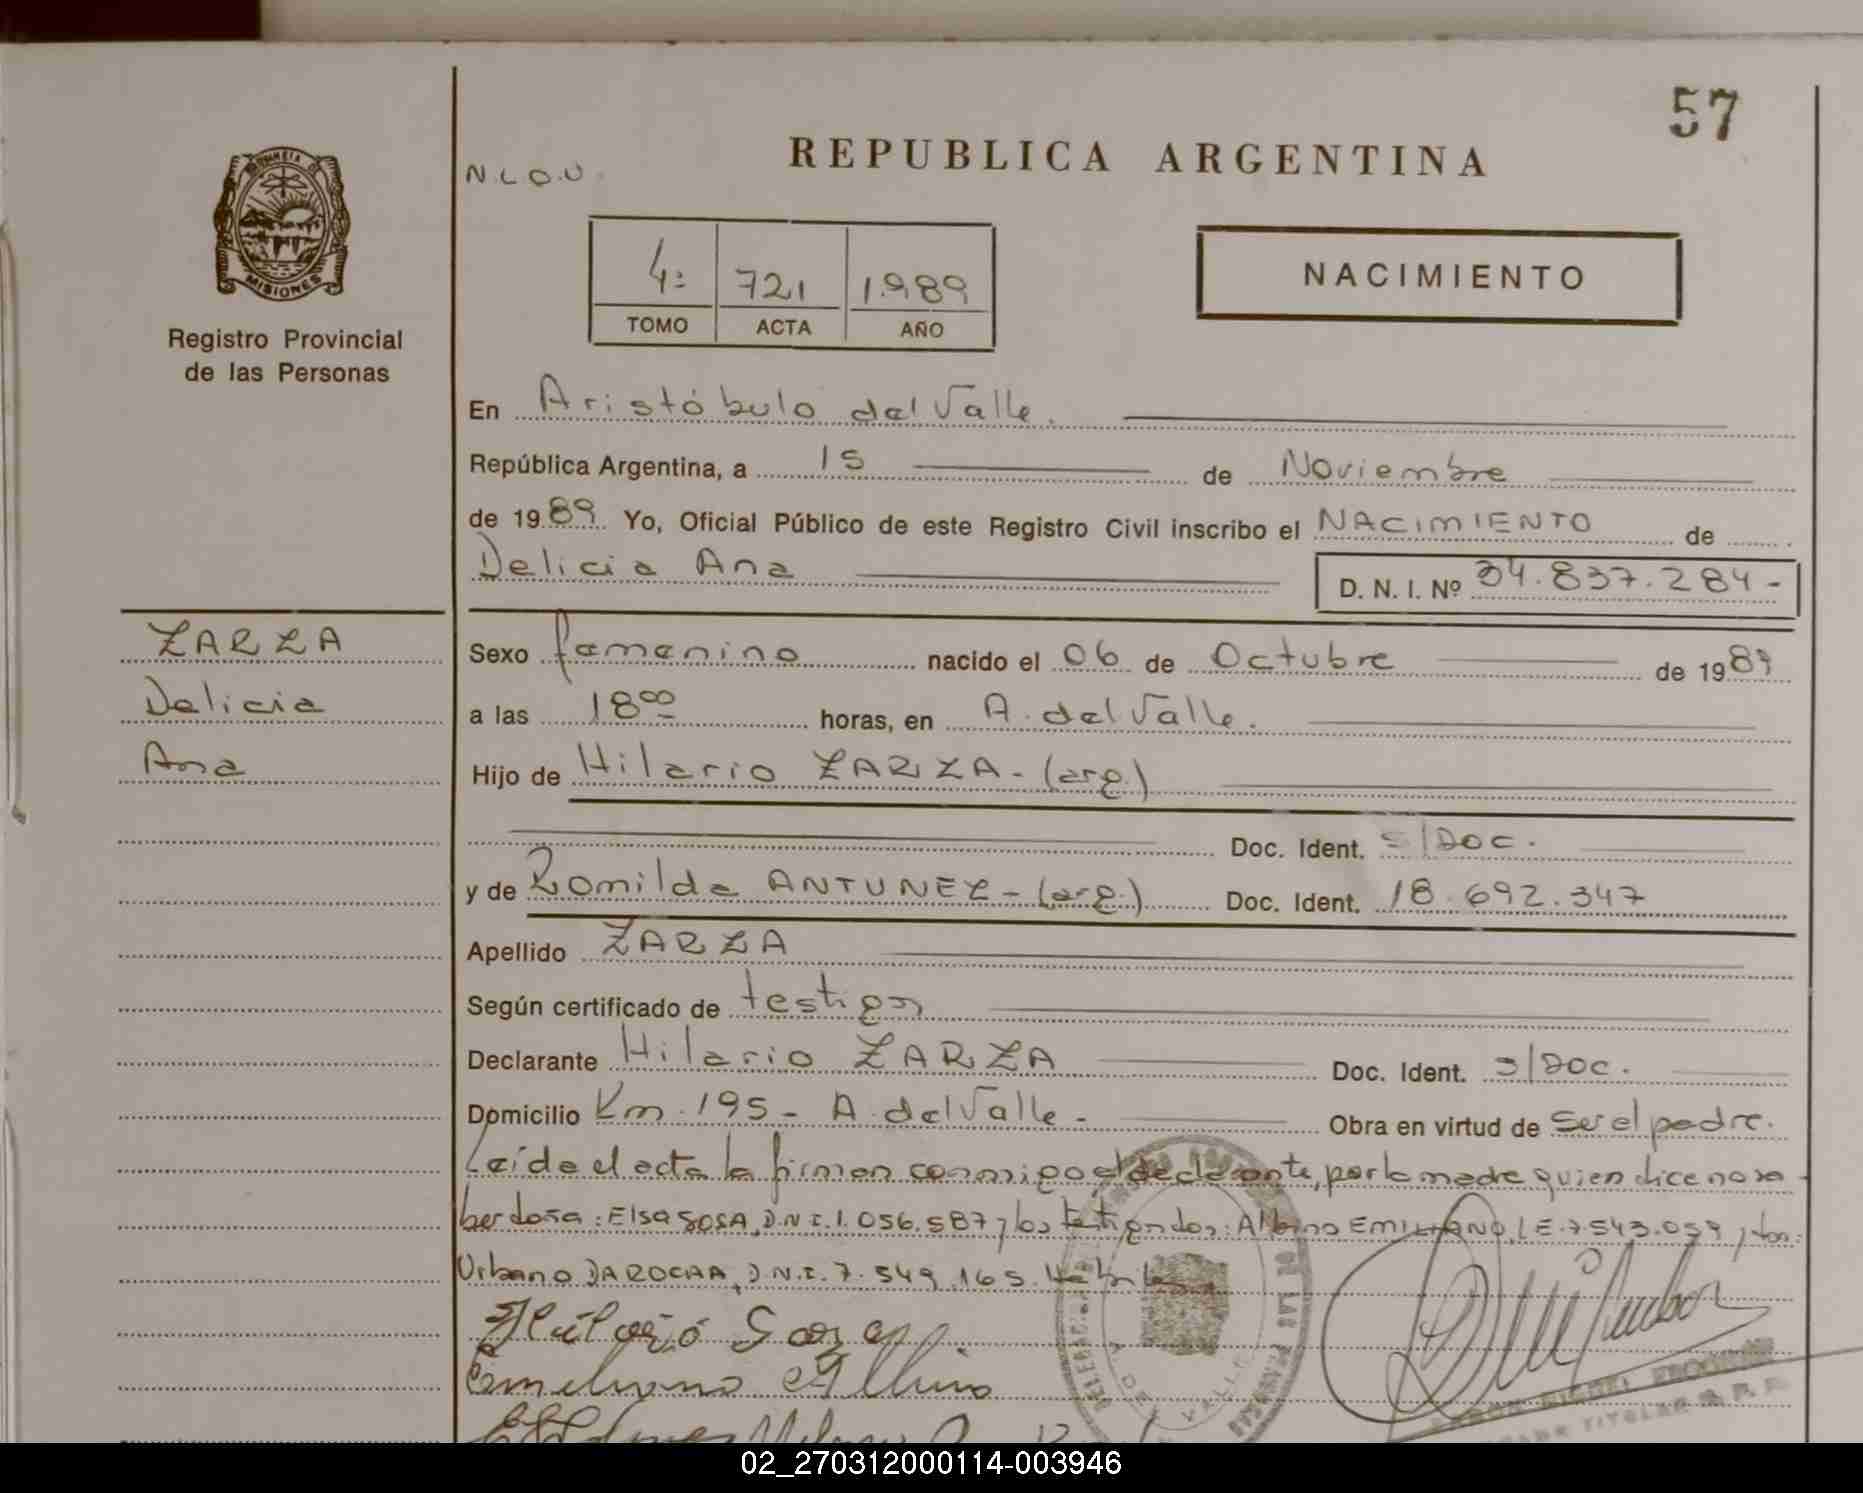 57
REPUBLICA ARGENTINA
N.L.O.U.
PROVINCIA D
MISIONES
Registro Provincial
de las Personas
4: 721 1.989
TOMO ACTA AÑO
NACIMIENTO
En Aristóbulo del Valle.
República Argentina, a 15 de Noviembre
de 1989. Yo, Oficial Público de este Registro Civil inscribo el NACIMIENTO de
Delicia Ana D. N. I. Nº 34.837.284-
ZARZA
Delicia
Ana
Sexo femenino nacido el 06 de Octubre de 1989
a las 18 00 horas, en A. del Valle.
Hijo de Hilario ZARZA - (arg.)
Doc. Ident. S/Doc.
y de Romilda ANTUNEZ - (arg.) Doc. Ident. 18.692.347
Apellido ZARZA
Según certificado de testigos
Declarante Hilario ZARZA Doc. Ident. S/Doc.
Domicilio Km. 195 - A. del Valle - Obra en virtud de Ser el padre.
Leída el acta la firman conmigo el declarante, por la madre quien dice no sa-
ber lo hace: Elsa SOSA, D.N.I. 1.056.587 y los testigos don: Albino EMILIANO, L.E. 7.543.059 y don:
Urbano DAROCHA, D.N.I. 7.549.165.
Emeliano Albino
DE LAS PERSONAS
02_270312000114-003946